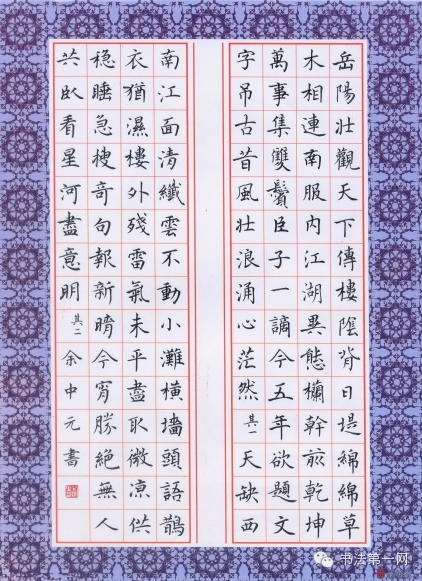 岳陽壮觀天下傳樓陰背日堤綿綿草
木相連南服内江湖異態欄幹前乾坤
萬事集雙鬢臣子一謫今五年欲題文
字吊古昔風壮浪涌心茫然其一天缺西
南江面清纖雲不動小灘橫墻頭語鵲
衣猶濕樓外殘雷氣未平盡取微凉供
稳睡急搜奇句報新晴今宵勝絕無人
共臥看星河盡意明其二余中元書
书法第一网